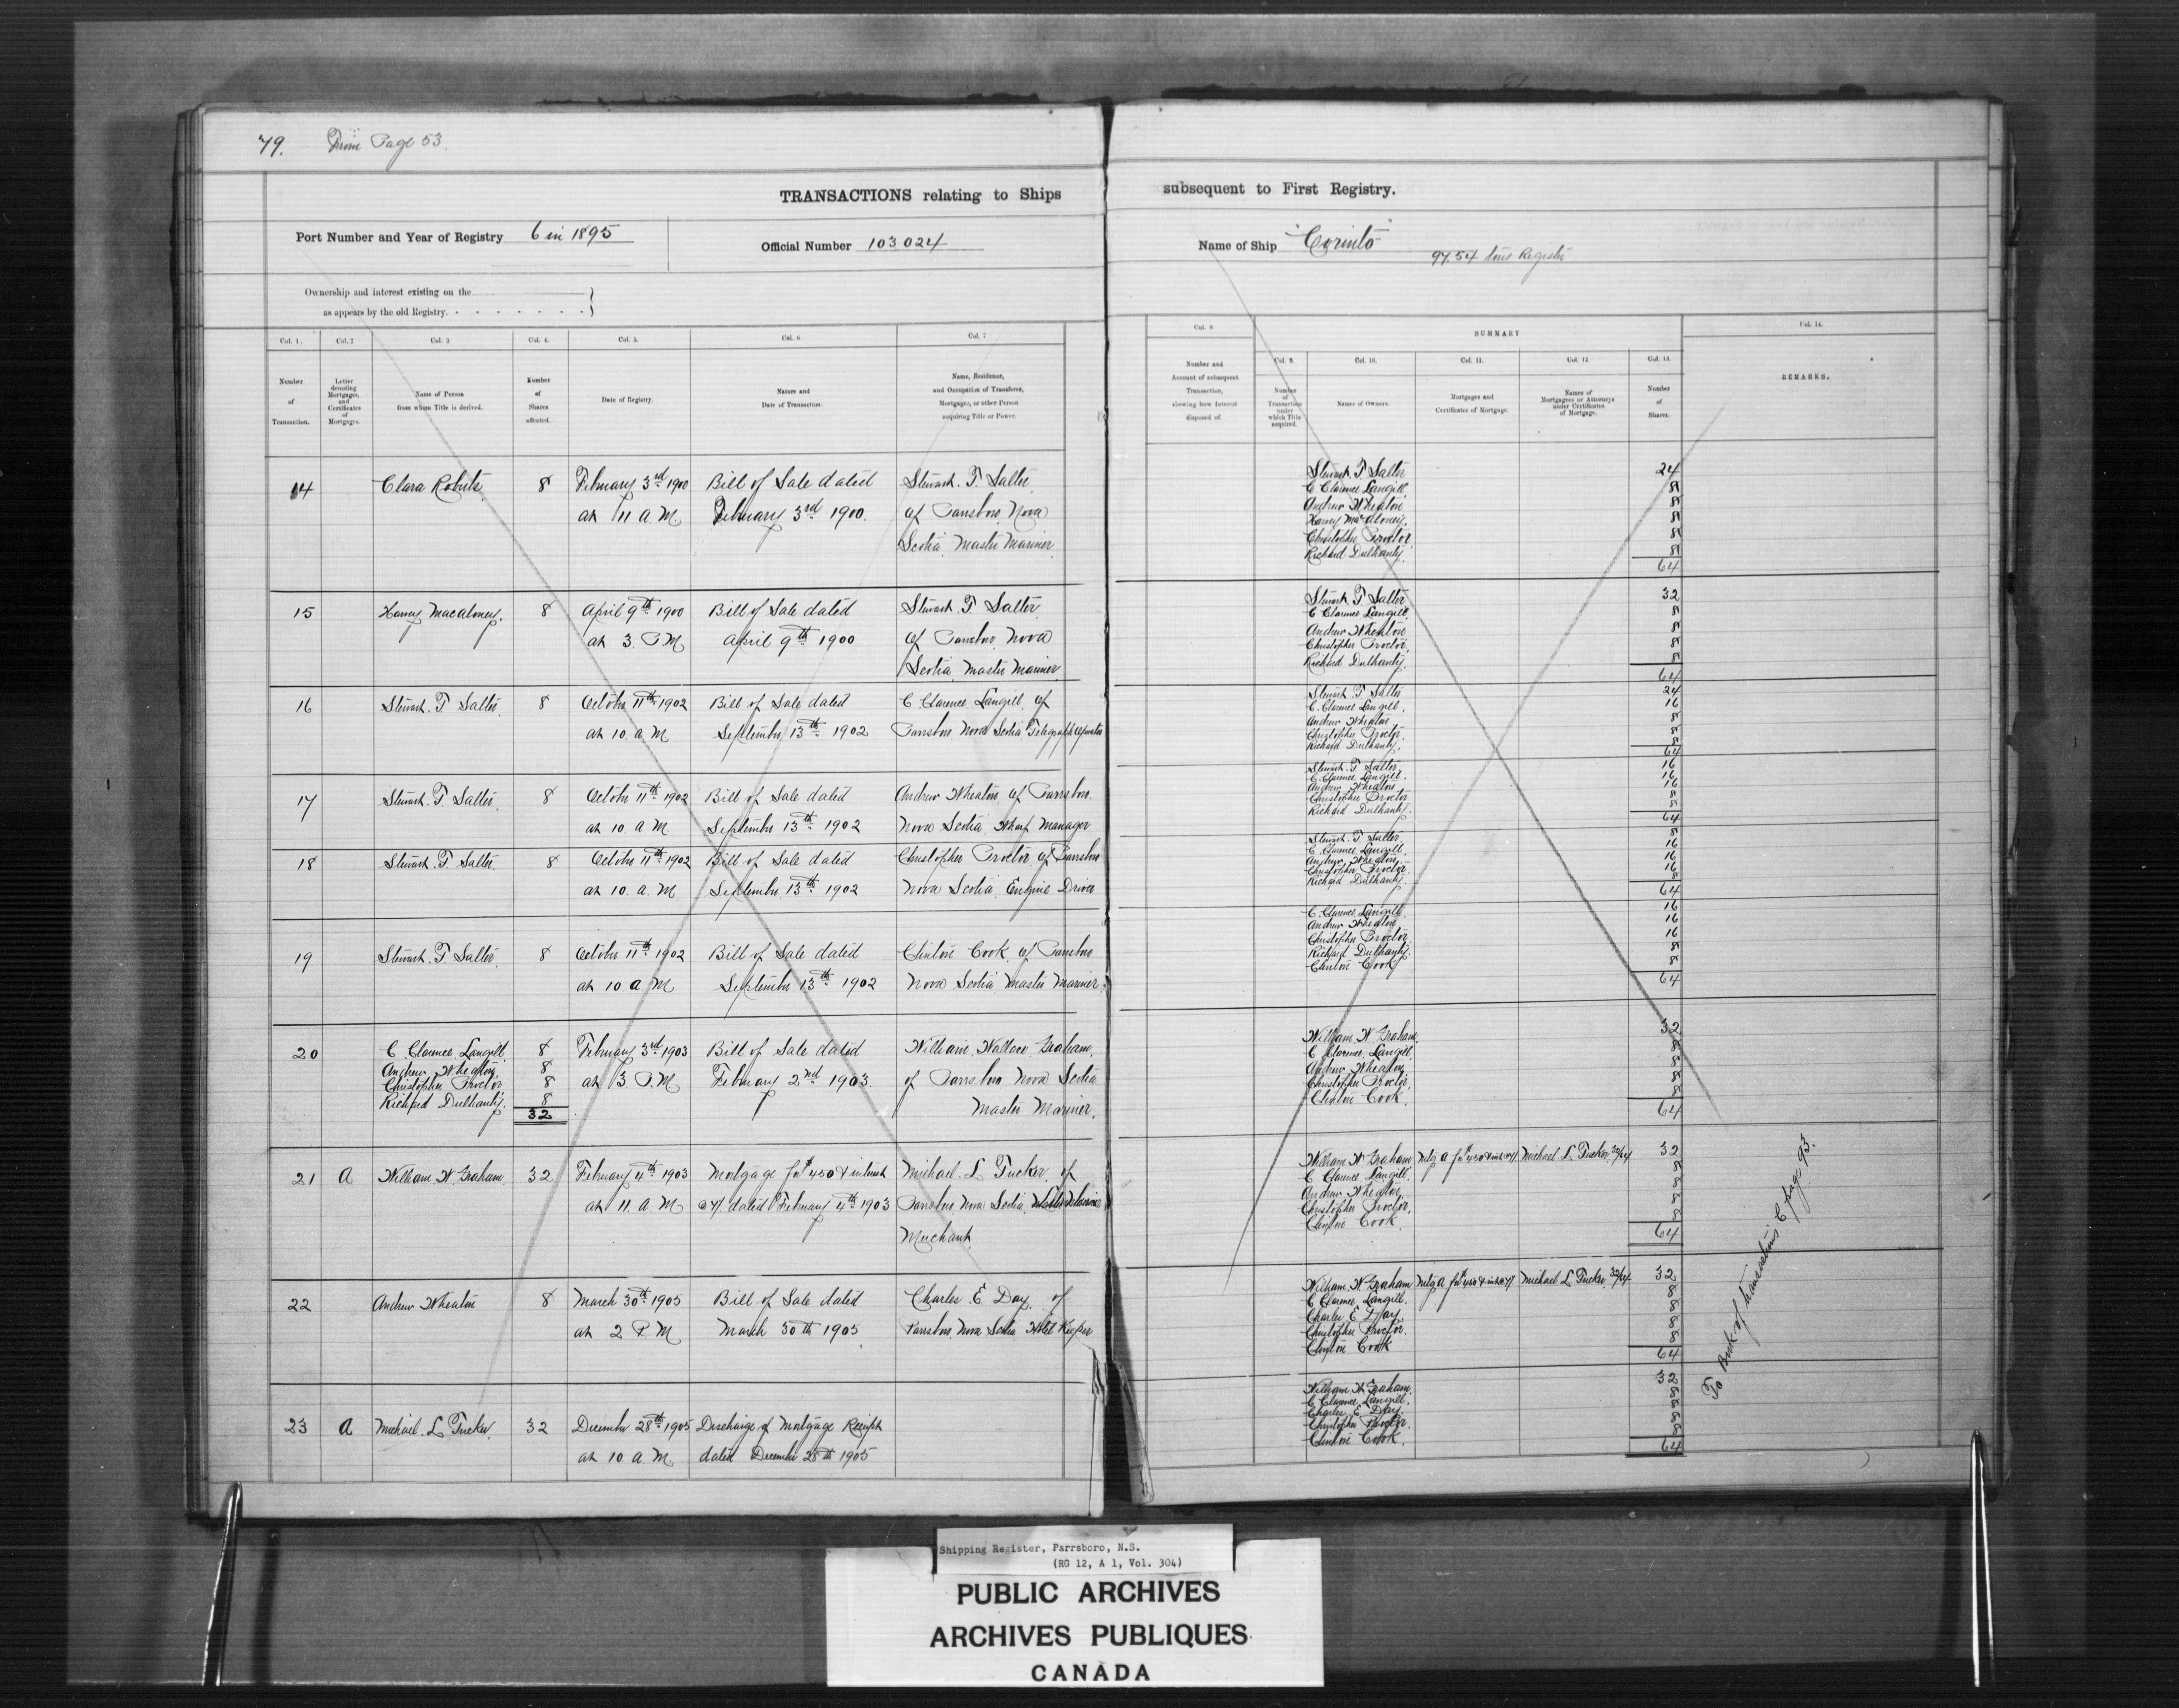 79. From Page 53.
TRANSACTIONS relating to Ships subsequent to First Registry.
Port Number and Year of Registry 6 in 1895
Official Number 103024
Name of Ship "Corinto"
97.54 tons Register
Ownership and interest existing on the
as appears by the old Registry.
Col. 1.
Number of Transaction.
Col. 2
Letter denoting Mortgages, and Certificates of Mortgages
Col. 3
Name of Person from whom Title is derived.
Col. 4.
Number of Shares affected.
Col. 5.
Date of Registry.
Col. 6
Nature and Date of Transaction.
Col. 7
Name, Residence, and Occupation of Transferee, Mortgagee, or other Person acquiring Title or Power.
Col. 8
Number and Account of subsequent Transaction, showing how Interest disposed of.
SUMMARY
Col. 9.
Number of Transaction under which Title acquired.
Col. 10.
Names of Owners.
Col. 11.
Mortgages and Certificates of Mortgage.
Col. 12
Names of Mortgagees or Attorneys under Certificates of Mortgage.
Col. 13.
Number of Shares.
Col. 14.
REMARKS.
14 Clara Roberts 8 February 3rd 1900 Bill of Sale dated Stewart. T Salter
at 11 a.M February 3rd 1900. of Parrsboro Nova
Scotia Master Mariner
Stewart. T Salter 24
C Clarence Langill 8
Andrew Wheaton 8
Harvey MacAloney, 8
Christopher Proctor, 8
Richard Dulhanty. 8
64
15 Harvey Macaloney. 8 April 9th 1900 Bill of Sale dated Stewart T Salter
at 3. P.M April 9th 1900 of Parrsboro Nova
Scotia Master Mariner
Stewart. T Salter 32
C Clarence Langill, 8
Andrew Wheaton 8
Christopher Proctor, 8
Richard Dulhanty. 8
64
16 Stewart. T Salter 8 October 11th 1902 Bill of Sale dated C Clarence Langill of
at 10. a M September 13th 1902 Parrsboro Nova Scotia Telegraph Operator
Stewart. T Salter 24
C. Clarence Langill. 16
Andrew Wheaton, 8
Christopher Proctor. 8
Richard Dulhanty. 8
64
17 Stewart. T Salter. 8 October 11th 1902 Bill of Sale dated Andrew Wheaton of Parrsboro.
at 10. a M September 13th 1902 Nova Scotia Wharf Manager
Stewart. T Salter 16
C. Clarence Langill. 16
Andrew Wheaton 16
Christopher Proctor 8
Richard Dulhanty. 8
64
18 Stewart. T Salter. 8 October 11th 1902 Bill of Sale dated Christopher Proctor of Parrsboro
at 10. a. M September 13th 1902 Nova Scotia Engine Driver
Stewart. T Salter 8
C. Clarence Langill. 16
Andrew Wheaton 16
Christopher Proctor. 16
Richard Dulhanty. 8
64
19 Stewart. T Salter. 8 October 11th 1902 Bill of Sale dated Clinton Cook of Parrsboro
at 10 a. M September 13th 1902 Nova Scotia Master Mariner
C. Clarence Langill. 16
Andrew Wheaton 16
Christopher Proctor 16
Richard Dulhanty. 8
Clinton Cook 8
64
20 C. Clarence Langill 8 February 3rd 1903 Bill of Sale dated William Wallace Graham,
Andrew Wheaton, 8 at 3. P.M February 2nd 1903. of Parrsboro Nova Scotia
Christopher Proctor 8 Master Mariner.
Richard Dulhanty. 8
32
William W Graham. 32
C Clarence Langill 8
Andrew Wheaton 8
Christopher Proctor, 8
Clinton Cook. 8
64
21 A William W Graham. 32 February 4th 1903 Mortgage for $450 & interest Michael. L Tucker of
at 11. a. M @7% dated February 4th 1903 Parrsboro Nova Scotia Master Mariner
Merchant
William W Graham Mtg A for $450 & int @7% Michael L Tucker 32/64 32
C Clarence Langill. 8
Andrew Wheaton 8
Christopher Proctor, 8
Clinton Cook. 8
64
22 Andrew Wheaton 8 March 30th 1905 Bill of Sale dated Charles E Day. of
at 2 P M March 30th 1905. Parrsboro Nova Scotia Hotel Keeper
William W Graham Mtg A for $450 & int @7% Michael L Tucker 32/64 32
C Clarence Langill. 8
Charles E Day. 8
Christopher Proctor. 8
Clinton Cook 8
64
23 A Michael. L Tucker. 32 December 28th 1905 Discharge of Mortgage Receipt
at 10. a. M. dated December 28th 1905
William W Graham. 32
C Clarence Langill. 8
Charles E Day. 8
Christopher Proctor. 8
Clinton Cook. 8
64
To Book of transactions C page 93.
Shipping Register, Parrsboro, N.S.
(RG 12, A 1, Vol. 304)
PUBLIC ARCHIVES
ARCHIVES PUBLIQUES
CANADA